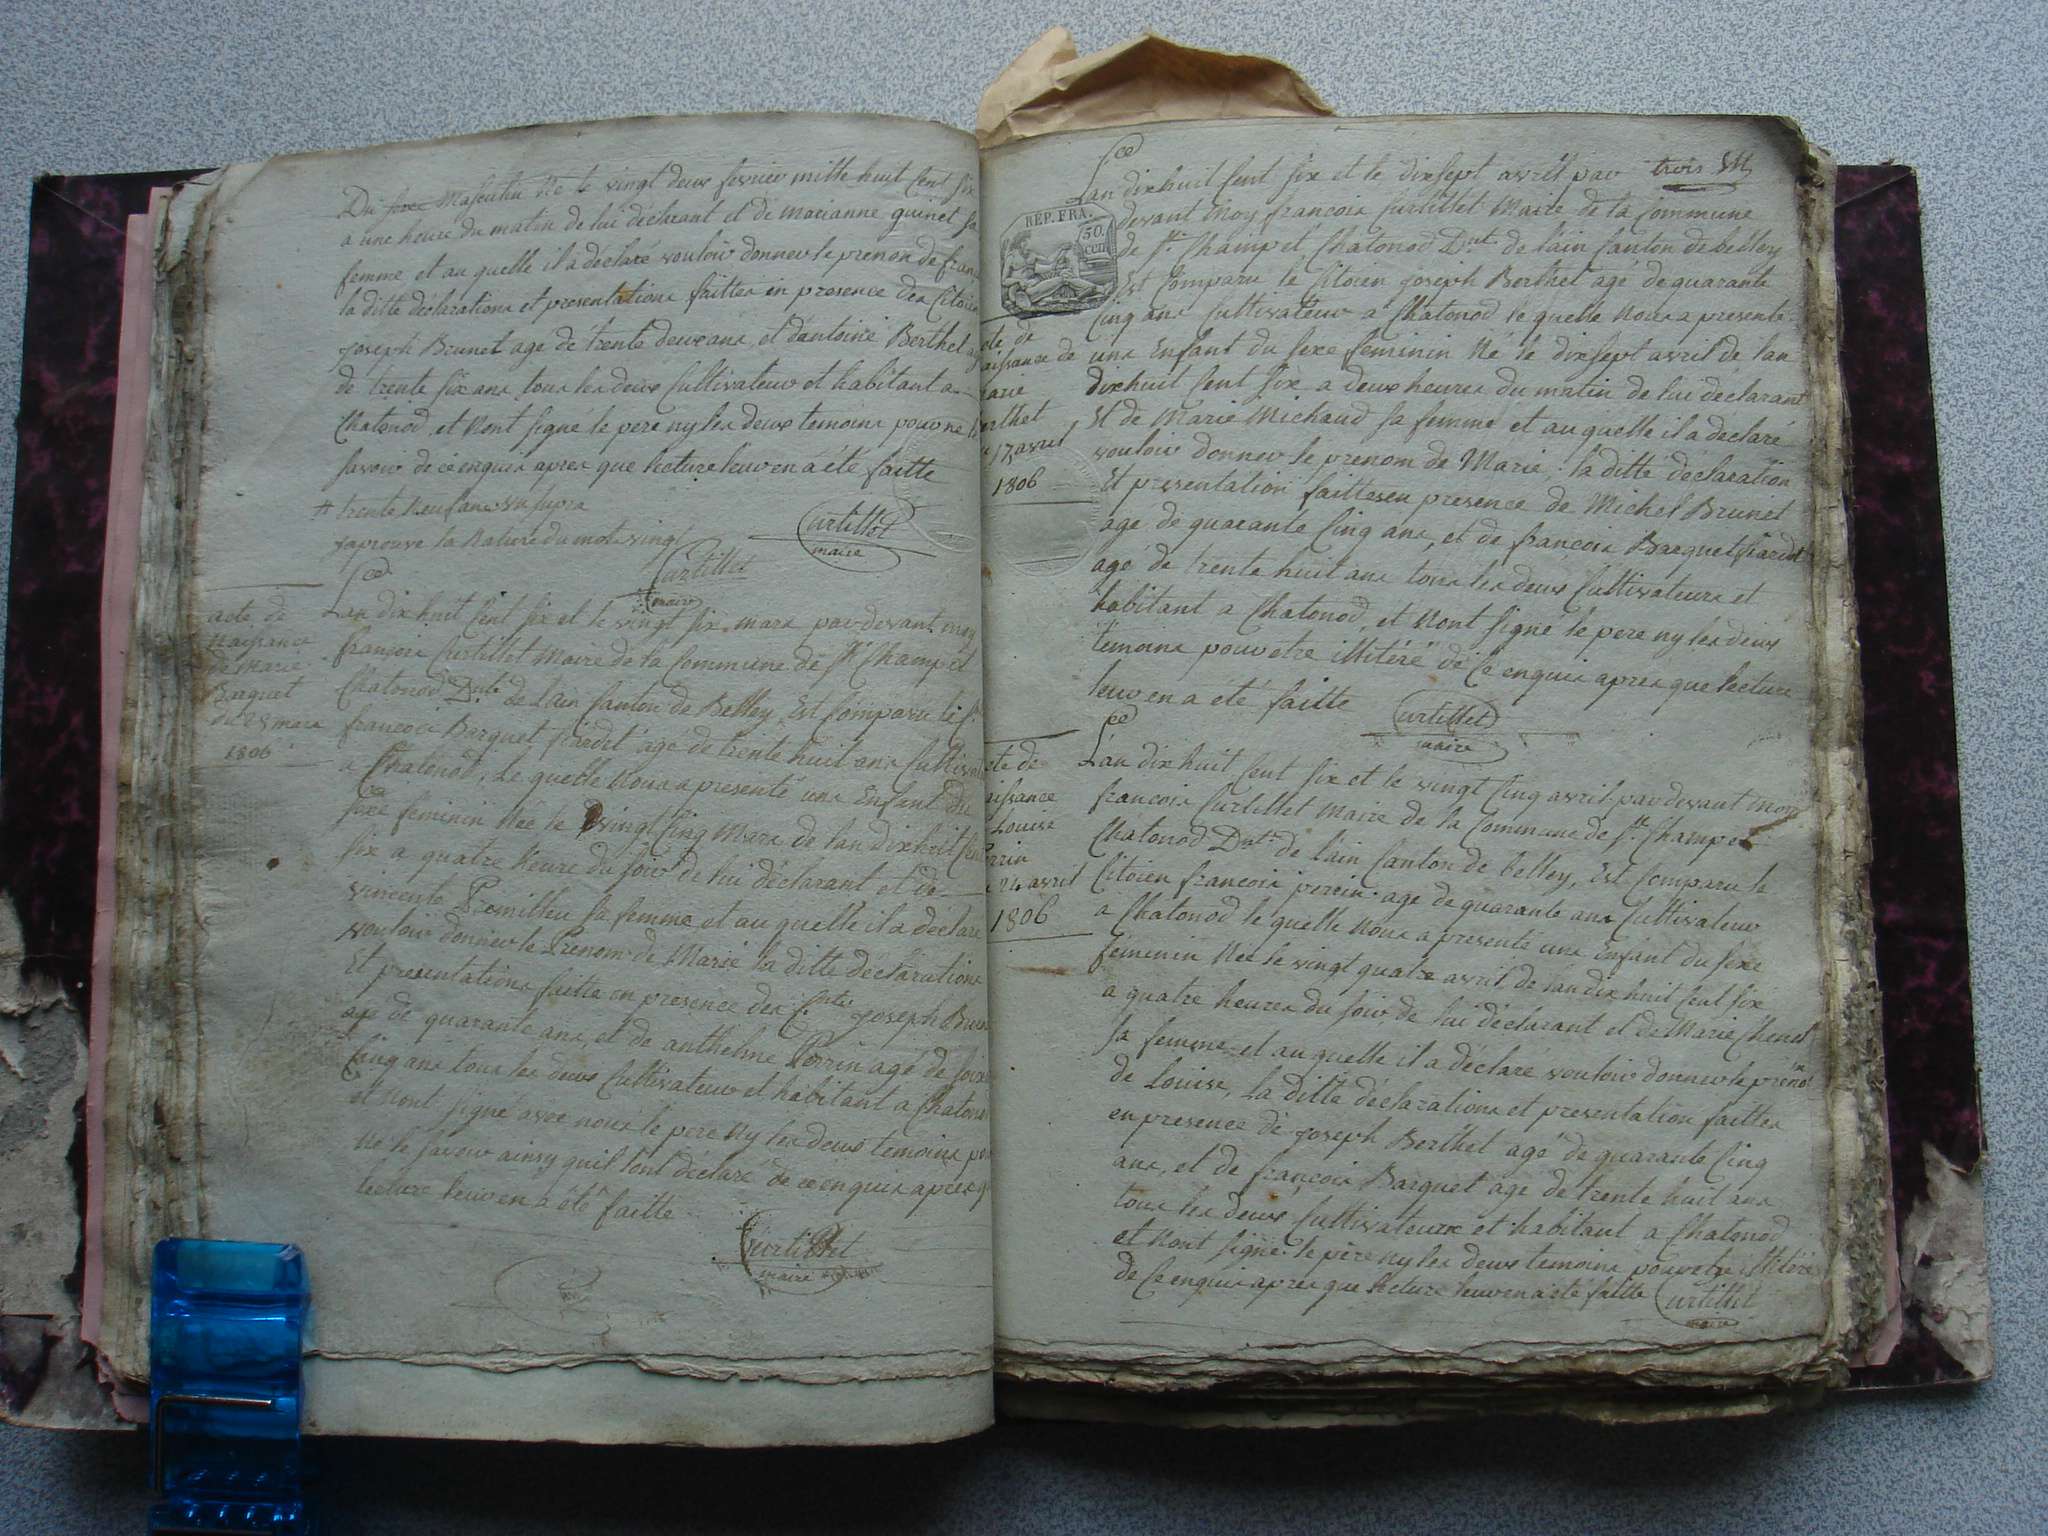 Du sexe masculin né le vingt deux février mille huit cent six
a une heure du matin de lui déclarant et de marianne guinet sa
femme et au quelle il a déclaré vouloir donner le prenom de
la ditte déclarations et presentations faittes en presence des Citoien
joseph Brunet age de trente deux ans et d'antoine Berthet
de trente six ans tous les deux Cultivateur et habitant a
Chatonod et n'ont signé le pere ny les deux temoins pour ne
savoir de ce enquis apres que lecture leur en a été faitte
# trente neuf ans
j'aprouve la nature du mot vingt
Curtillet
maire
Curtillet
maire
acte de
Naissance
de Marie
Barquet
du 25 mars
1806
L'an dix huit Cent six et le vingt six mars par devant moy
françois Curtillet Maire de la Commune de St Champ et
Chatonod Dnt de Lain Canton de Belley Est Comparu le
françois Barquet age de trente huit ans
a Chatonod, le quelle Nous a presenté une Enfant du
sexe feminin Née le vingt Cinq Mars de lan dix huit Cent
six a quatre heure du soir de lui déclarant et de
vincente sa femme et au quelle il a déclaré
vouloir donner le Prenom de Marie la ditte déclarations
Et presentations faitte en presence des joseph
age de quarante ans, et de anthelme Perrin agé de
Cinq ans tous les deux Cultivateur et habitant a
et n'ont signé avec nous le pere ny les deux temoins
ne le savoir ainsy quil l'ont déclaré de ce enquis apres
lecture leur en a été faitte
Curtillet
maire
trois
REP. FRA.
50.
cen
L'an dix huit Cent six et le dix sept avril par
devant Moy françois Curtillet Maire de la Commune
de St Champ et Chatonod Dnt de lain Canton de belley
Est Comparu le Citoien joseph Berthet agé de quarante
Cinq ans Cultivateur a Chatonod le quelle Nous a presenté
une Enfant du sexe feminin Né le dix sept avril de lan
dix huit Cent six a deux heures du matin de lui déclarant
Et de Marie Michaud sa femme et au quelle il a declaré
vouloir donner le prenom de Marie: la ditte déclaration
Et presentation faittes en presence de Michel Brunet
age de quarante Cinq ans, et de françois Barquet
agé de trente huit ans tous les deux Cultivateurs et
habitant a Chatonod, et N'ont signé le pere ny les deux
temoins pour etre illitéré de Ce enquis apres que lecture
leur en a été faitte
Curtillet
maire
17 avril
1806
L'an dix huit Cent six et le vingt Cinq avril par devant moy
francois Curtillet Maire de la Commune de St Champ et
Chatonod Dnt de lain Canton de belley, Est Comparu le
Citoien francois perrin age de quarante ans Cultivateur
a Chatonod le quelle Nous a presenté une Enfant du sexe
femenin Née le vingt quatre avril de lan dix huit Cent six
a quatre heures du soir de lui déclarant et de Marie
sa femme et au quelle il a déclaré vouloir donner le prénom
de Louise, la ditte déclarations et presentation faittes
en presence de joseph Berthet agé de quarante Cinq
ans, et de françois Barquet age de trente huit ans
tous les deux Cultivateurs et habitant a Chatonod
et N'ont signé le père ny les deux temoins pour etre illitéré
de Ce enquis apres que lecture leur en a été faitte
Curtillet
maire
Louise
24 avril
1806